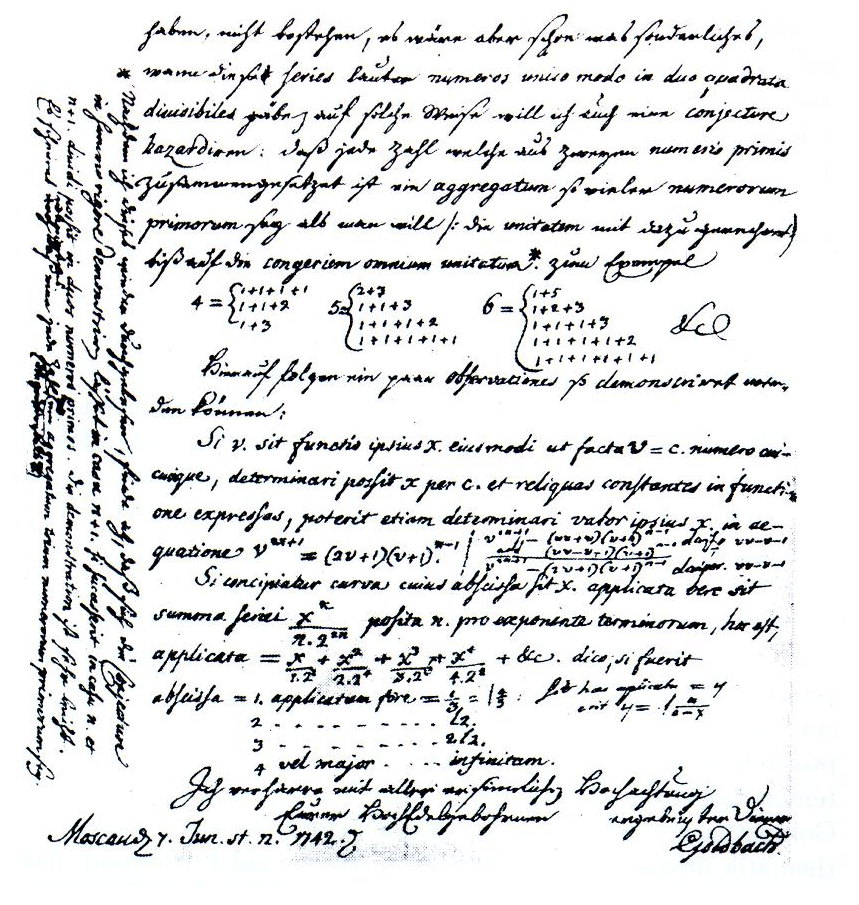 haben, nicht bestehen, es wäre aber schon was sonderliches,
wann diese series lauter numeros unico modo in duo quadrata
divisibiles gäbe, auf solche Weise will ich auch eine conjecture
hazardiren: daß jede Zahl welche aus zweyen numeris primis
zusammengesetzet ist ein aggregatum so vieler numerorum
primorum sey als man will /: die unitatem mit dazu gerechnet)
biß auf die congeriem omnium unitatum*. zum Exempel
4 = { 1+1+1+1
1+1+2
1+3
5 = { 2+3
1+1+3
1+1+1+2
1+1+1+1+1
6 = { 1+5
1+2+3
1+1+1+3
1+1+1+1+2
1+1+1+1+1+1
&c
Hierauf folgen ein paar observationes so demonstriret wer-
den können:
Si v. sit functio ipsius x. eiusmodi ut facta v = c. numero cui-
cunque, determinari possit x per c. et reliquas constantes in functi-
one expressas, poterit etiam determinari valor ipsius x. in ae-
quatione v^{2x+1} = (2v+1)(v+1)^{x-1}.
Si concipiatur curva cuius abscissa sit x. applicata vero sit
summa seriei x^n/(n.2^{2n}) posita n. pro exponente terminorum, hoc est,
applicata = x/1.2² + x²/2.2⁴ + x³/3.2⁶ + x⁴/4.2⁸ + &c. dico, si fuerit
abscissa = 1. applicatam fore = l 4/3
2 - - - - - - - - l2.
3 - - - - - - - - 2l2.
4 vel major - - - - infinitam.
Ich verharre mit aller ersinnlichen Hochachtung
Eurer HochEdelgebohrnen ergebenster Diener
Moscau d. 7. Jun. st. n. 1742. Goldbach.
* Nachdem ich dieses wieder durchgelesen, finde ich, daß sich die Conjecture
in summo rigore demonstriren lässet in casu n+1. si successerit in casu n. et
n+1. dividi possit in duos numeros primos. Die demonstration ist sehr leicht.
Es scheinet eine jede Zahl ein aggregatum trium numerorum primorum sey.